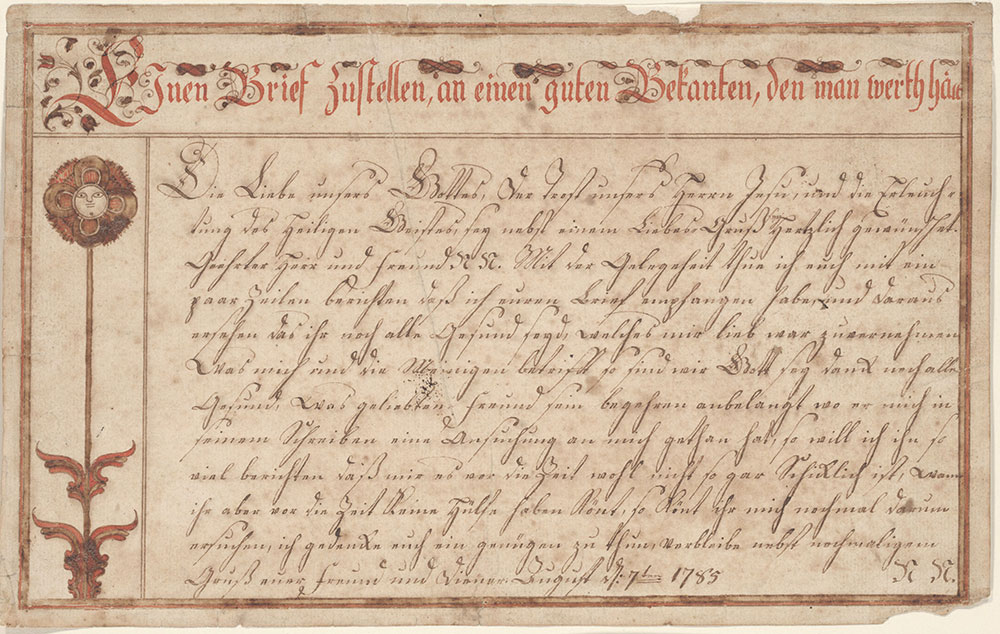 EInen Brief Zustellen, an einen guten Bekanten, den man werth hält
Die Liebe unsers Gottes, Der Trost unsers Herrn Jesu, und die Erleuch-
tung des Heiligen Geistes, sey nebst einem Liebes-Gruß Hertzlich gewünschet.
Geehrter Herr und Freund N N. Mit der Gelegeheit thue ich euch mit ein
paar Zeilen berichten daß ich euren Brief empfangen habe, und daraus
ersehen das ihr noch alle Gesund seyd, welches mir lieb war zuvernehmen
Was mich und die Meinigen betrifft so sind wir Gott sey danck noch alle
Gesund, Was geliebten Freund sein begehren anbelangt wo er mich in
seinem Schreiben eine Ansuchung an mich gethan hat, so will ich ihn so
viel berichten daß mir es vor die Zeit wohl nicht so gar Schicklich ist, Wann
ihr aber vor die Zeit keine Hülfe haben könt, so könt ihr mich nochmal darum
ersuchen, ich gedencke euch ein genügen zu thun, verbleibe nebst nochmaligem
Gruß euer Freund und Diener. August d: 7ten 1785 N N.